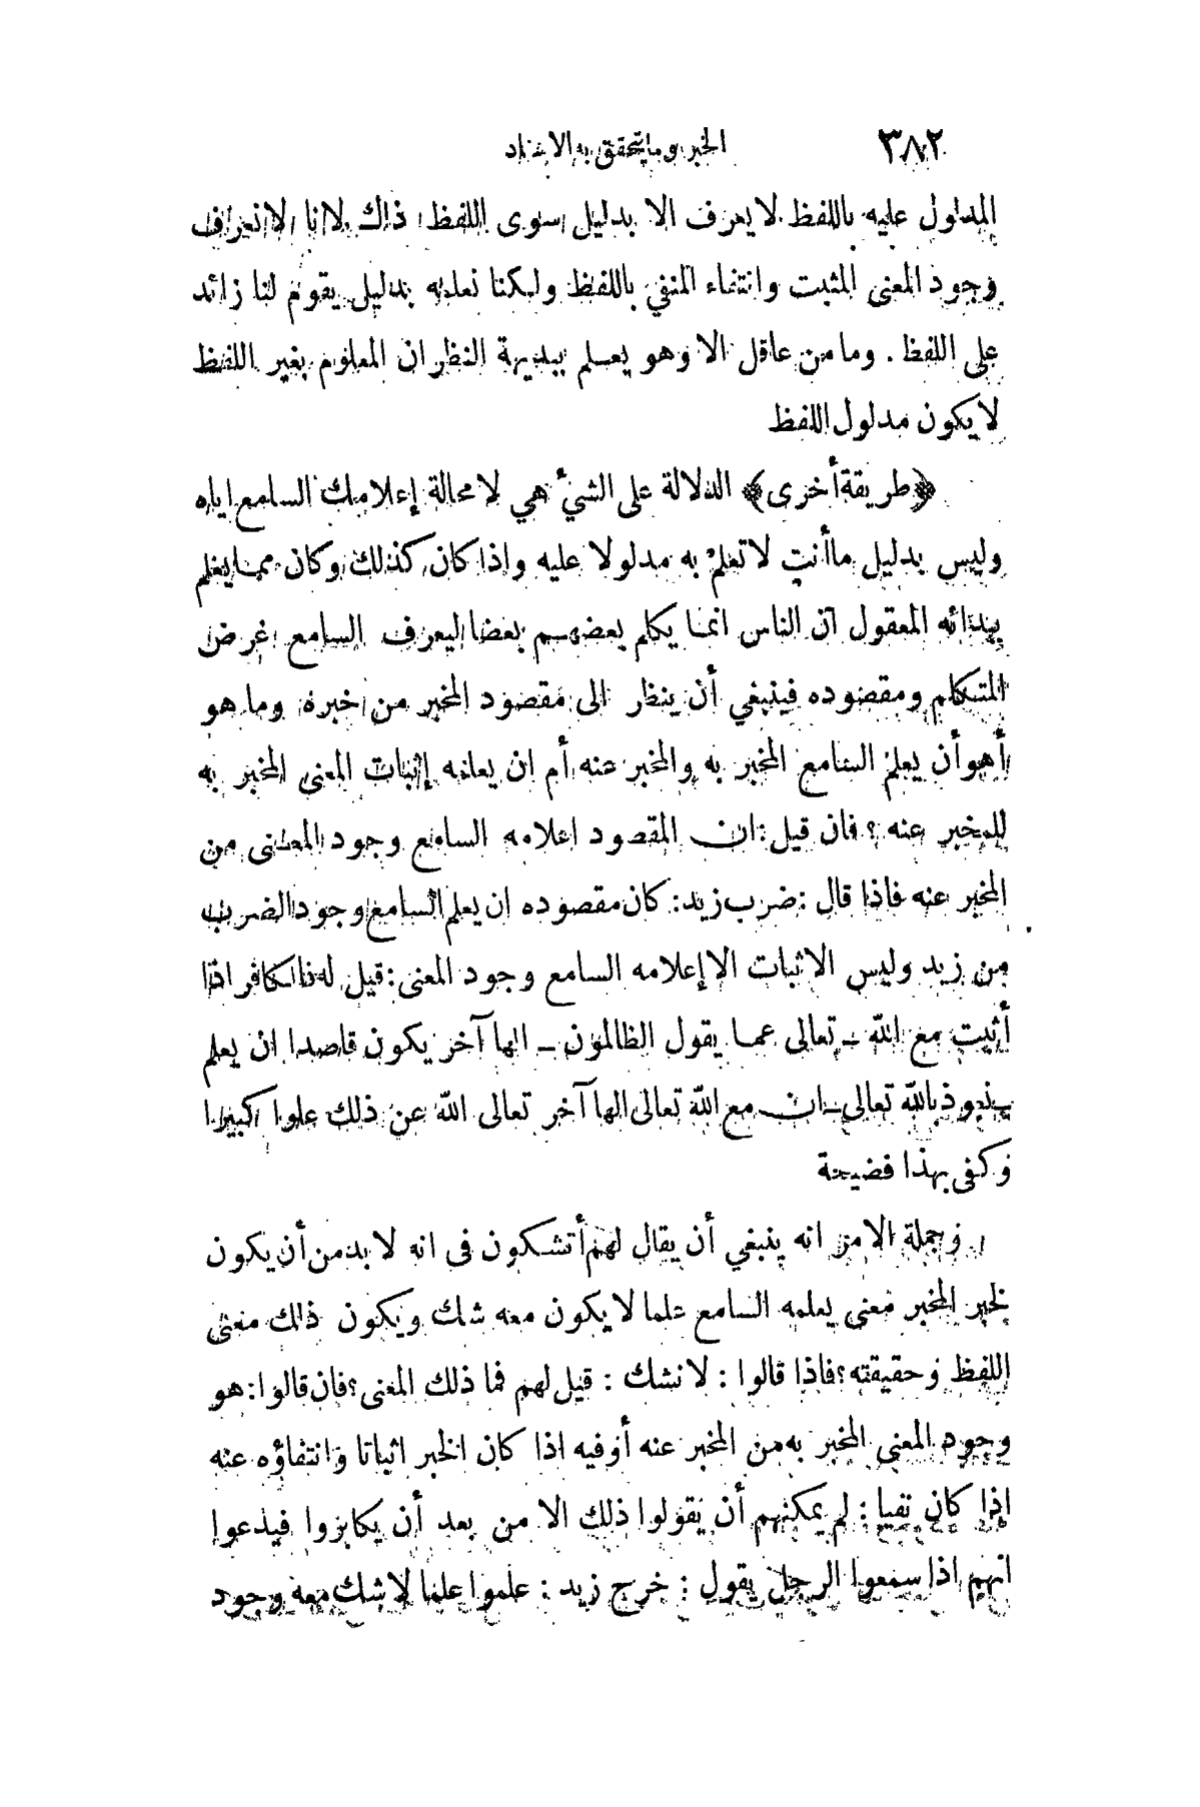 ٣٨٢ الخبر وما يتحقق به الاسناد
المدلول عليه باللفظ لا يعرف الا بدليل سوى اللفظ ذاك لانا لا نعرف
وجود المعنى المثبت وانتفاء المنفي باللفظ ولكنا نعلمه بدليل يقوم لنا زائد
على اللفظ . وما من عاقل الا وهو يعلم ببديهة النظر ان المعلوم بغير اللفظ
لا يكون مدلول اللفظ
﴿طريقة أخرى﴾ الدلالة على الشيء هي لا محالة إعلامك السامع اياه
وليس بدليل ما أنت لا تعلم به مدلولا عليه واذا كان كذلك وكان مما يعلم
ببدائه المعقول ان الناس انما يكلم بعضهم بعضا ليعرف السامع غرض
المتكلم ومقصوده فينبغي أن ينظر الى مقصود المخبر من خبره وما هو
أهو أن يعلم السامع المخبر به والمخبر عنه أم ان يعلمه إثبات المعنى المخبر به
للمخبر عنه ؟ فان قيل : ان المقصود اعلامه السامع وجود المعنى من
المخبر عنه فاذا قال : ضرب زيد : كان مقصوده ان يعلم السامع وجود الضرب
من زيد وليس الاثبات الا إعلامه السامع وجود المعنى : قيل له فالكافر اذا
أثبت مع الله ــ تعالى عما يقول الظالمون ــ الها آخر يكون قاصدا ان يعلم
ــ نعوذ بالله تعالى ــ ان مع الله تعالى الها آخر تعالى الله عن ذلك علوا كبيرا
وكفى بهذا فضيحة
وجملة الامر انه ينبغي أن يقال لهم أتشكون فى انه لا بد من أن يكون
لخبر المخبر معنى يعلمه السامع علما لا يكون معه شك ويكون ذلك معنى
اللفظ وحقيقته ؟ فاذا قالوا : لا نشك : قيل لهم فما ذلك المعنى ؟ فان قالوا : هو
وجود المعنى المخبر به من المخبر عنه أو فيه اذا كان الخبر اثباتا وانتفاؤه عنه
إذا كان نفيا : لم يمكنهم أن يقولوا ذلك الا من بعد أن يكابروا فيدعوا
انهم اذا سمعوا الرجل يقول : خرج زيد : علموا علما لا شك معه وجود